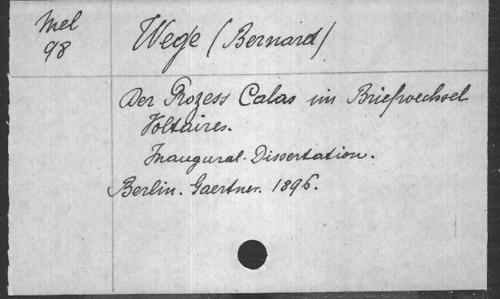 Mel
98
Wege (Bernard)
Der Prozess Calas im Briefwechsel
Voltaires.
Inaugural-Dissertation.
Berlin. Gaertner. 1896.